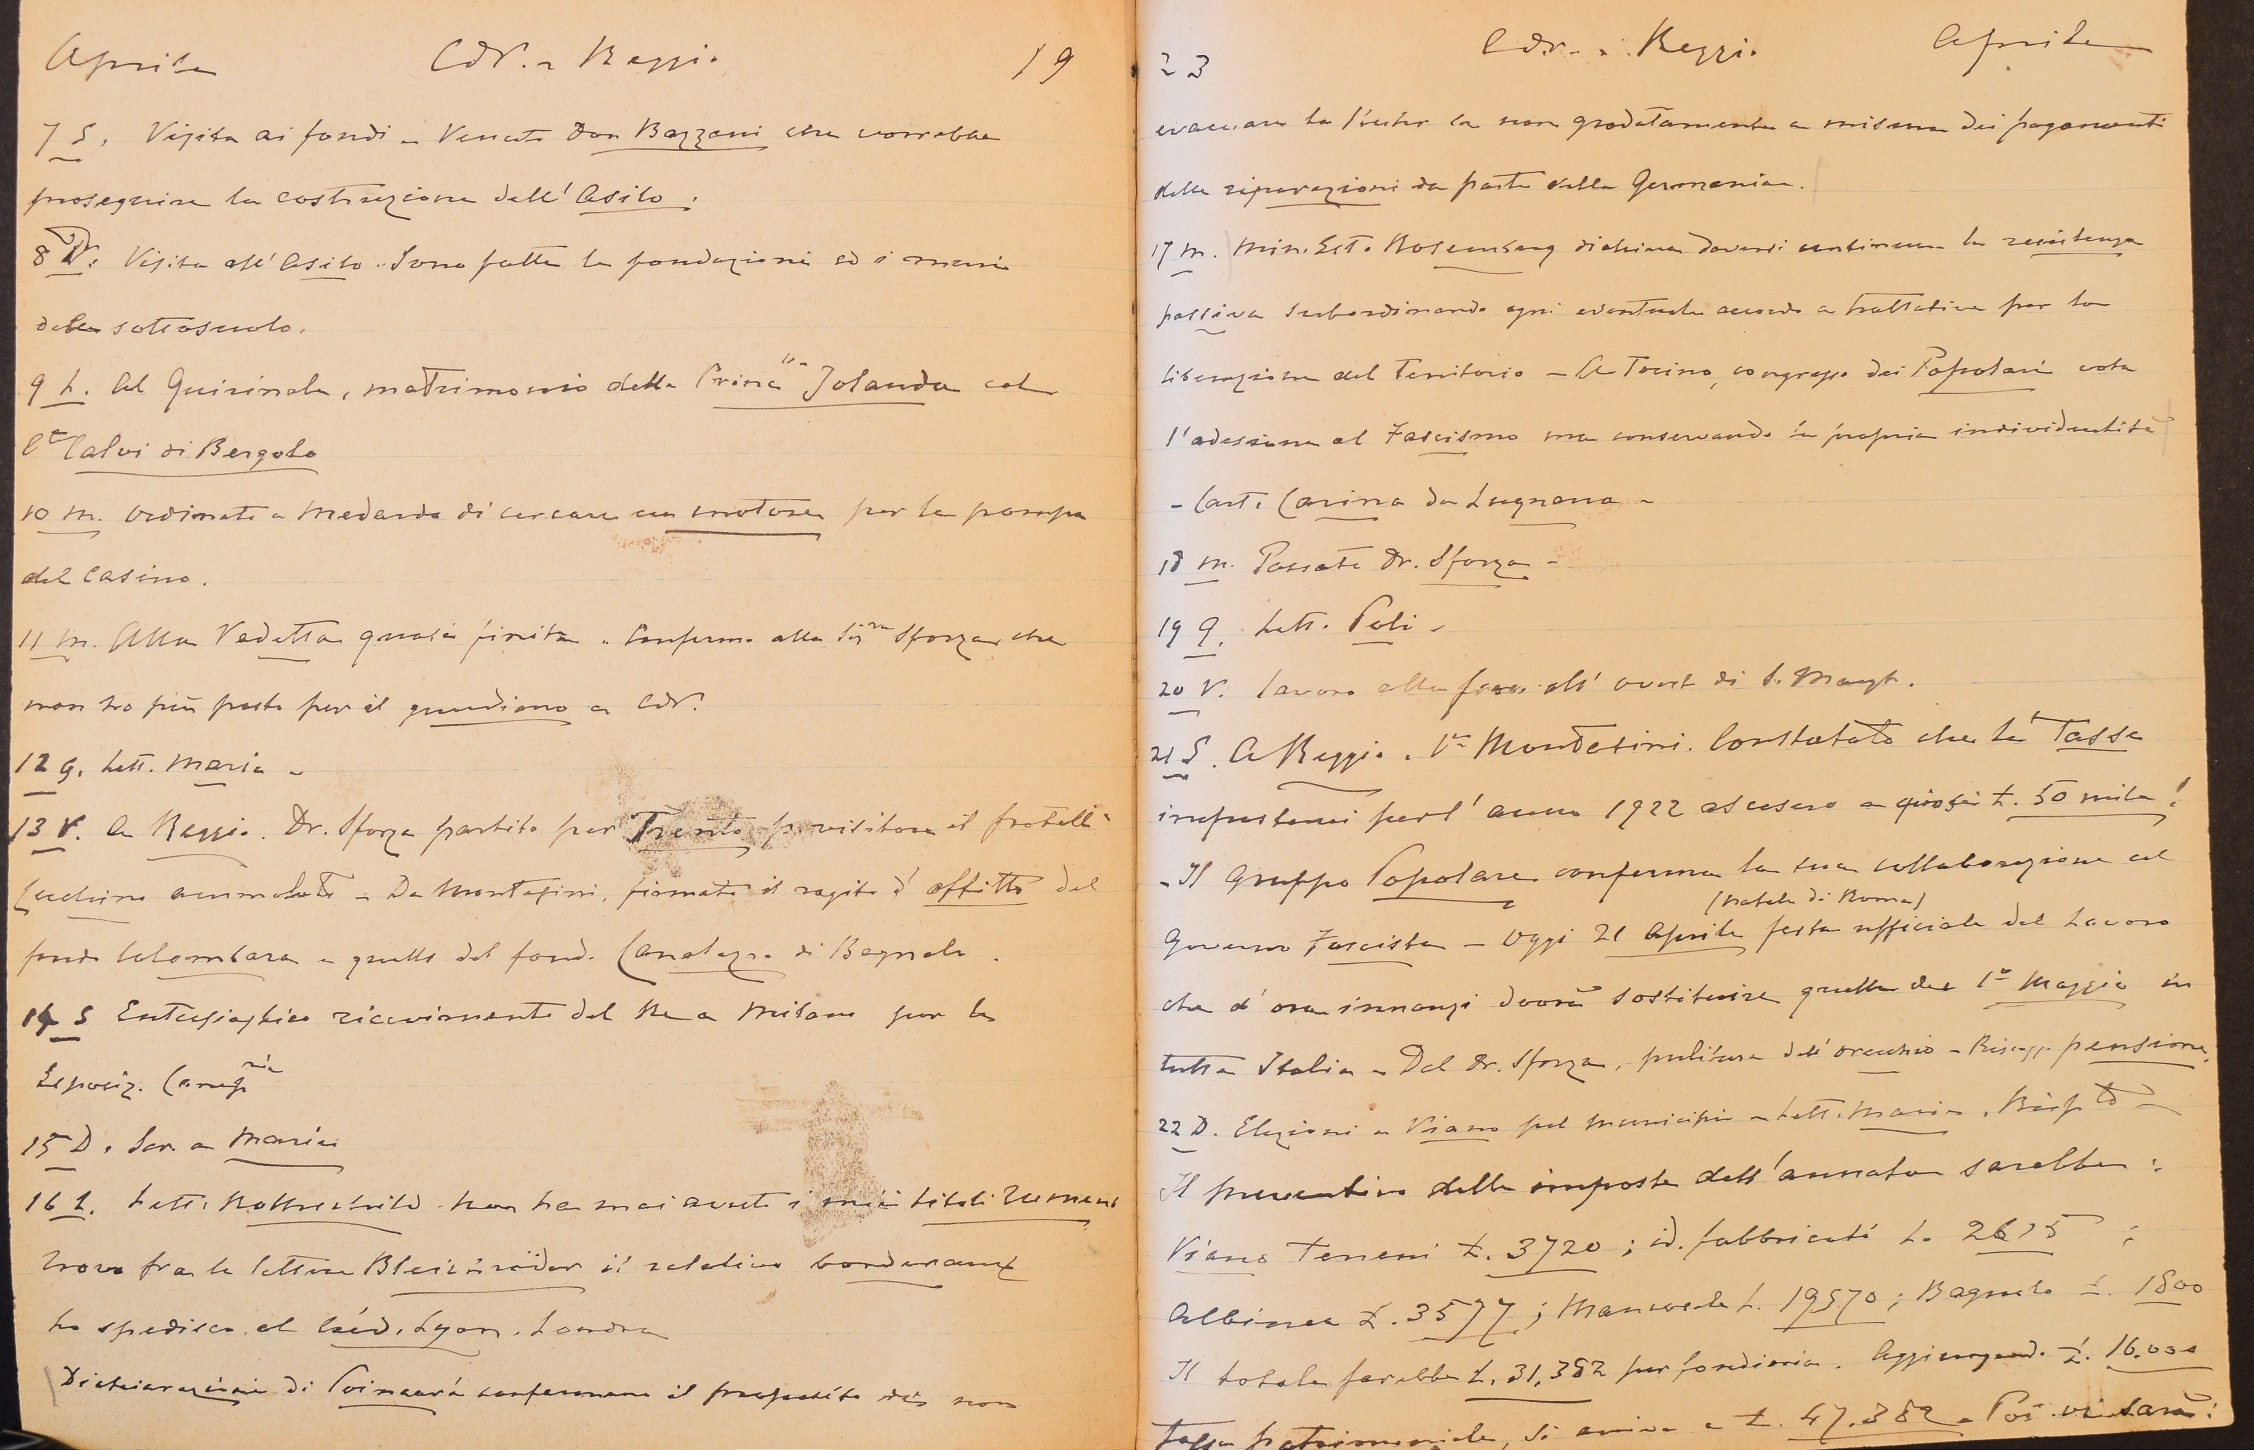 Aprile CdV. - Reggio 19
7 S. Visita ai fondi - Venuto Don Bazzani che vorrebbe
proseguire la costruzione dell'Asilo.
8 D. Visita all'Asilo. Sono fatte le fondazioni ed i muri
del sottosuolo.
9 L. Al Quirinale, matrimonio della Princ.ssa Jolanda col
Cte Calvi di Bergolo
10 M. Ordinato a Medardo di cercare un motore per la pompa
del Casino.
11 M. Alla Vedetta quasi finita. Confermo alla Sigra Sforza che
non ho più posto per il guardiano a CdV.
12 G. Lett. Maria -
13 V. A Reggio. Dr. Sforza partito per Trento p. visitare il fratello
Cecchino ammalato - Da Montesini, firmato il rogito d'affitto del
fondo Colombara e quello del fond. Canalazzo di Bagnolo.
14 S Entusiastico ricevimento del Re a Milano per la
Esposiz. Camp.ria
15 D. Scr. a Maria
16 L. Lett. Rothschild. Non ha mai avuto i miei titoli Rumeni
trovo fra le lettere Bleichröder il relativo bordereaux
lo spedisco al Créd. Lyon. Londra
Dichiarazioni di Poincaré confermano il proposito di non
23 CdV. - Reggio Aprile
evacuare la Ruhr se non gradatamente a misura dei pagamenti
delle riparazioni da parte della Germania.
17 M. Min. Est. Rosemberg dichiara doversi continuare la resistenza
passiva subordinando ogni eventuale accordo a trattative per la
liberazione del territorio - A Torino, congresso dei Popolari vota
l'adesione al Fascismo ma conservando la propria individualità
- Cart. Carina da Lugnana -
18 M. Passato Dr. Sforza -
19 G. Lett. Poli -
20 V. Lavoro alla all' ovest di S. Margh.
21 S. A Reggio. Montesini. Constatato che le Tasse
impostemi perl'anno 1922 ascesero a quasi L. 50 mila!
- Il Gruppo Popolare conferma la sua collaborazione al
(Natale di Roma)
Governo Fascista - Oggi 21 Aprile festa ufficiale del Lavoro
che d'ora innanzi dovrà sostituire quella del 1° Maggio in
tutta Italia - Dal Dr. Sforza, pulitura dell'orecchio - pensione.
22 D. Elezioni a Viano pel municipio - Lett. Maria.
Il preventivo delle imposte dell'annata sarebbe:
Viano Terreni L. 3720; id. fabbricati L. 2615;
Albinea L. 3577; L. 19570; Bagnolo L. 1800
Il totale sarebbe L. 31,382 per fondiaria. Aggiungendo L. 16.000
tassa patrimoniale, si arriva a L. 47.382 - Poi vi sarà: